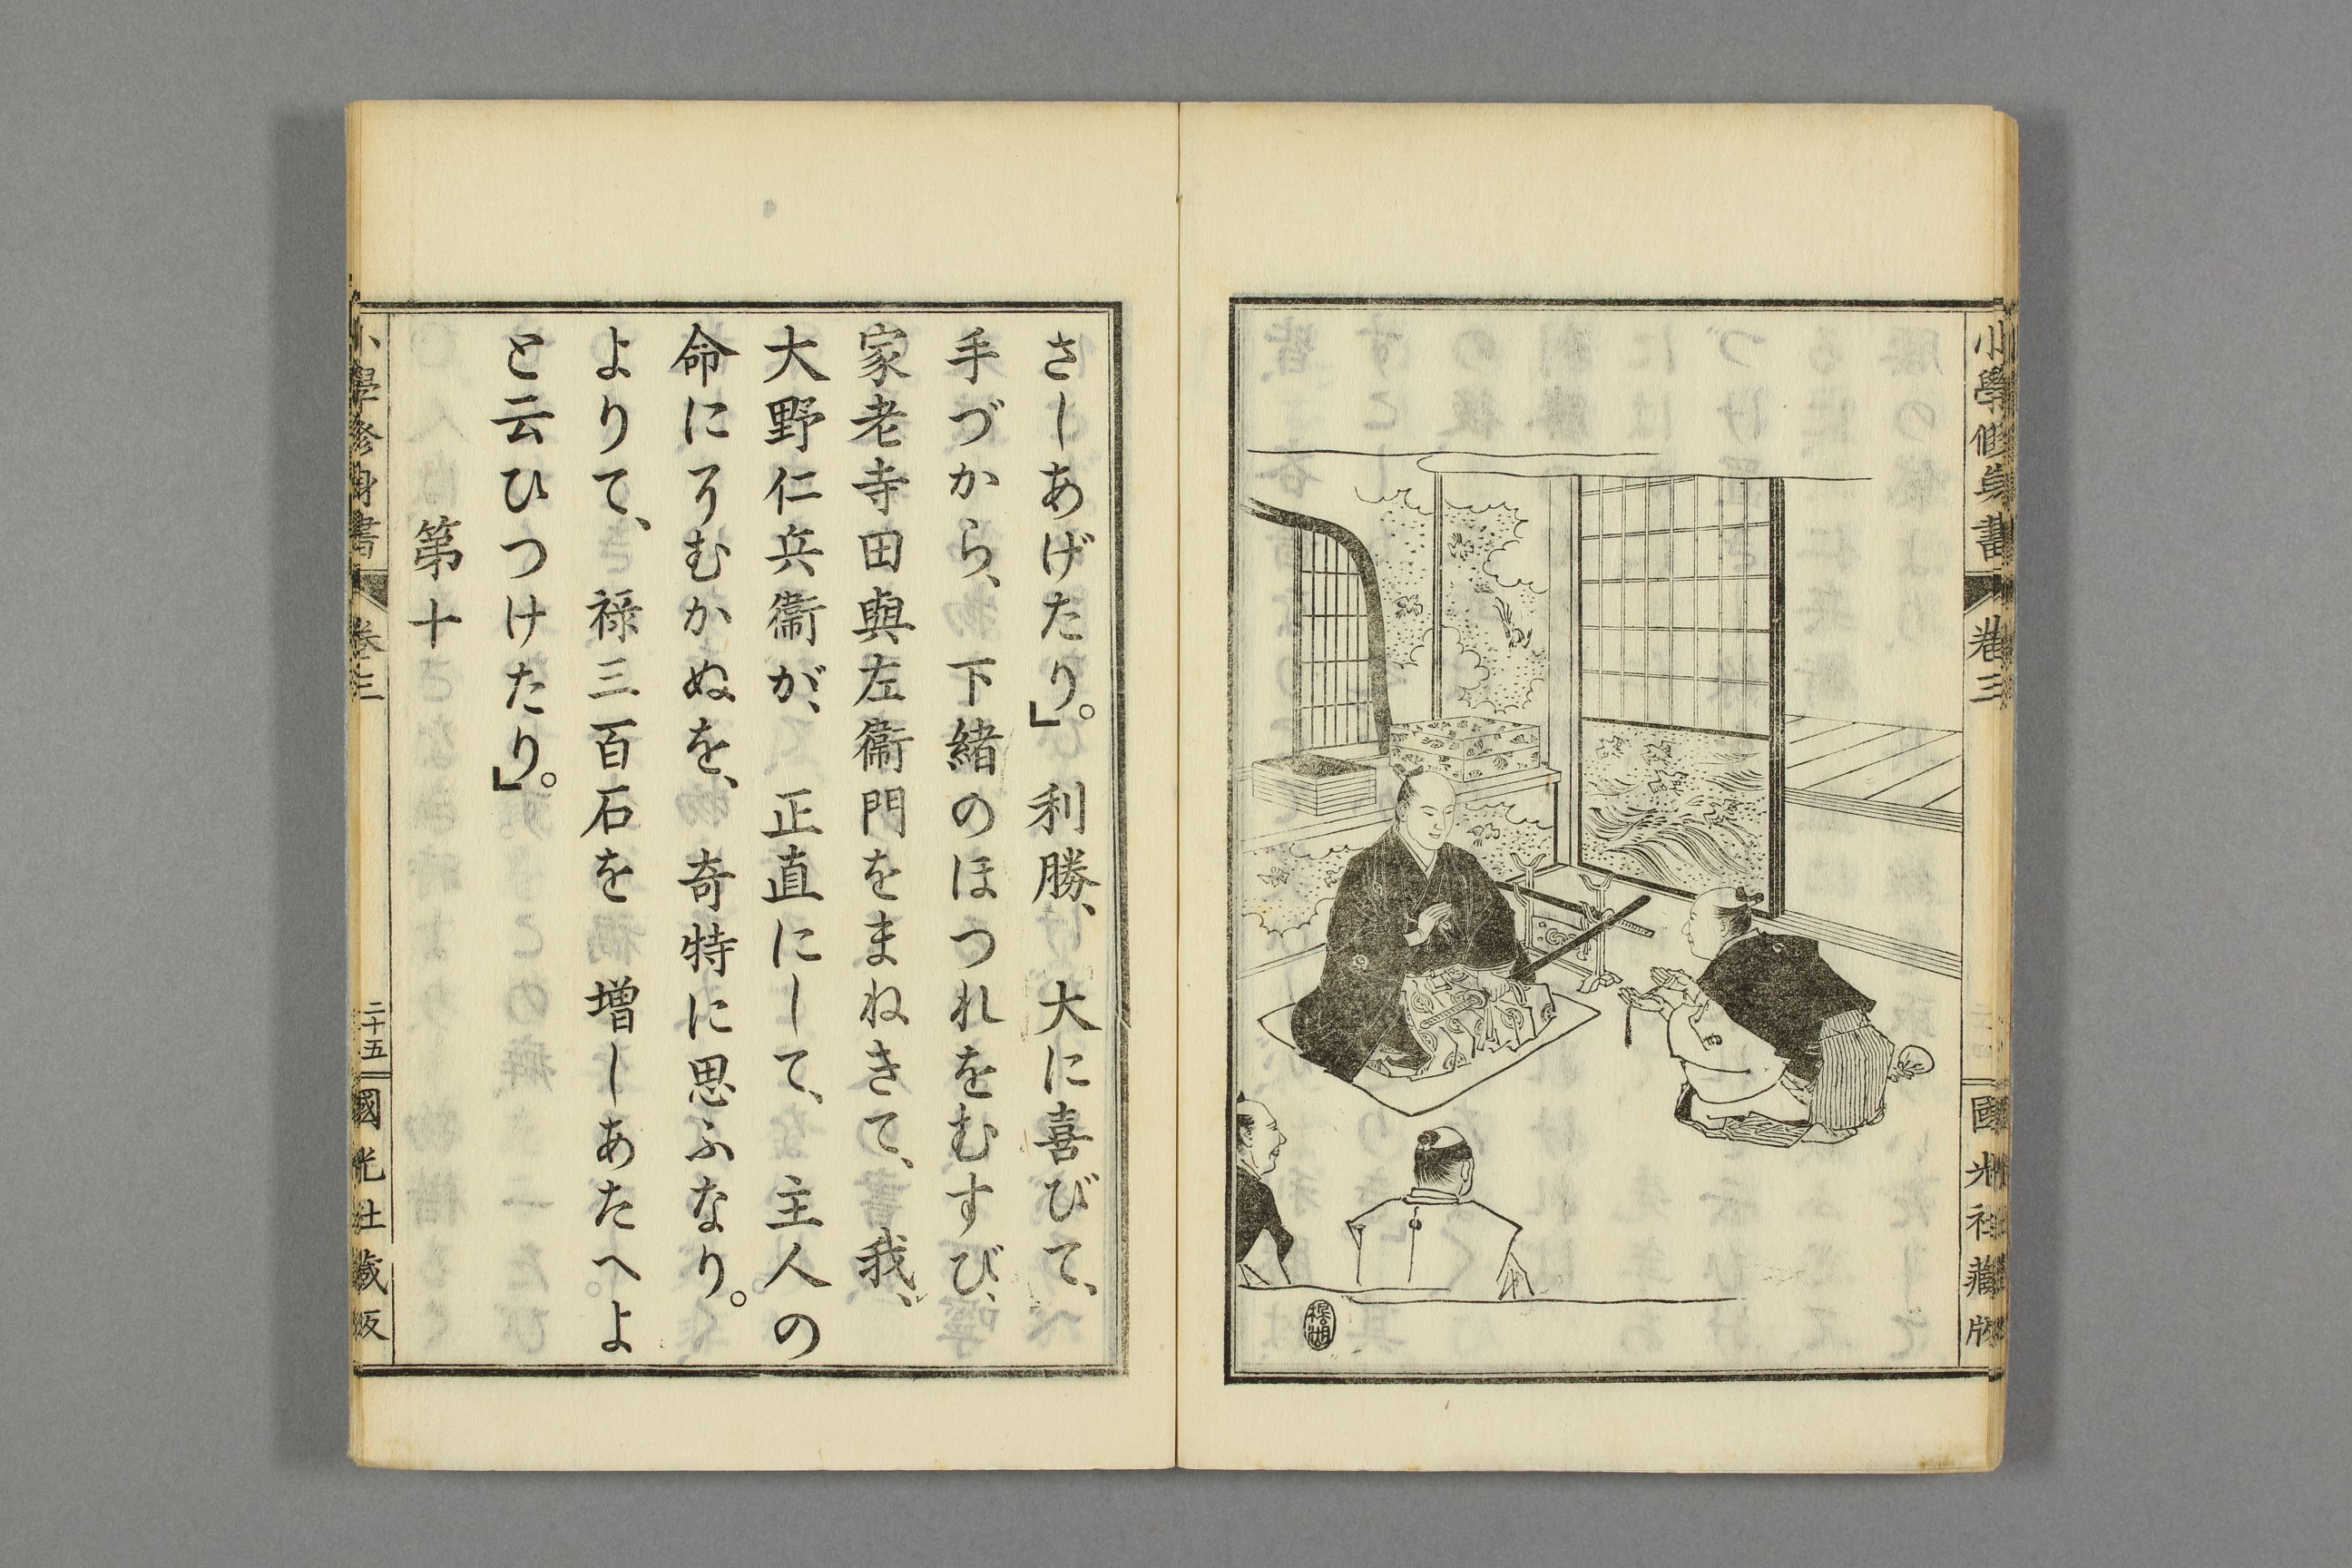 小學修身書 卷三 國光社藏版
さしあげたり。」利勝、大に喜びて、
手づから、下緒のほつれをむすび、
家老寺田與左衞門をまねきて、我、
大野仁兵衞が、正直にして、主人の
命にそむかぬを、奇特に思ふなり。
よりて、祿三百石を増しあたへよ
と云ひつけたり。」
第十
小學修身書 卷三 二十五 國光社藏版